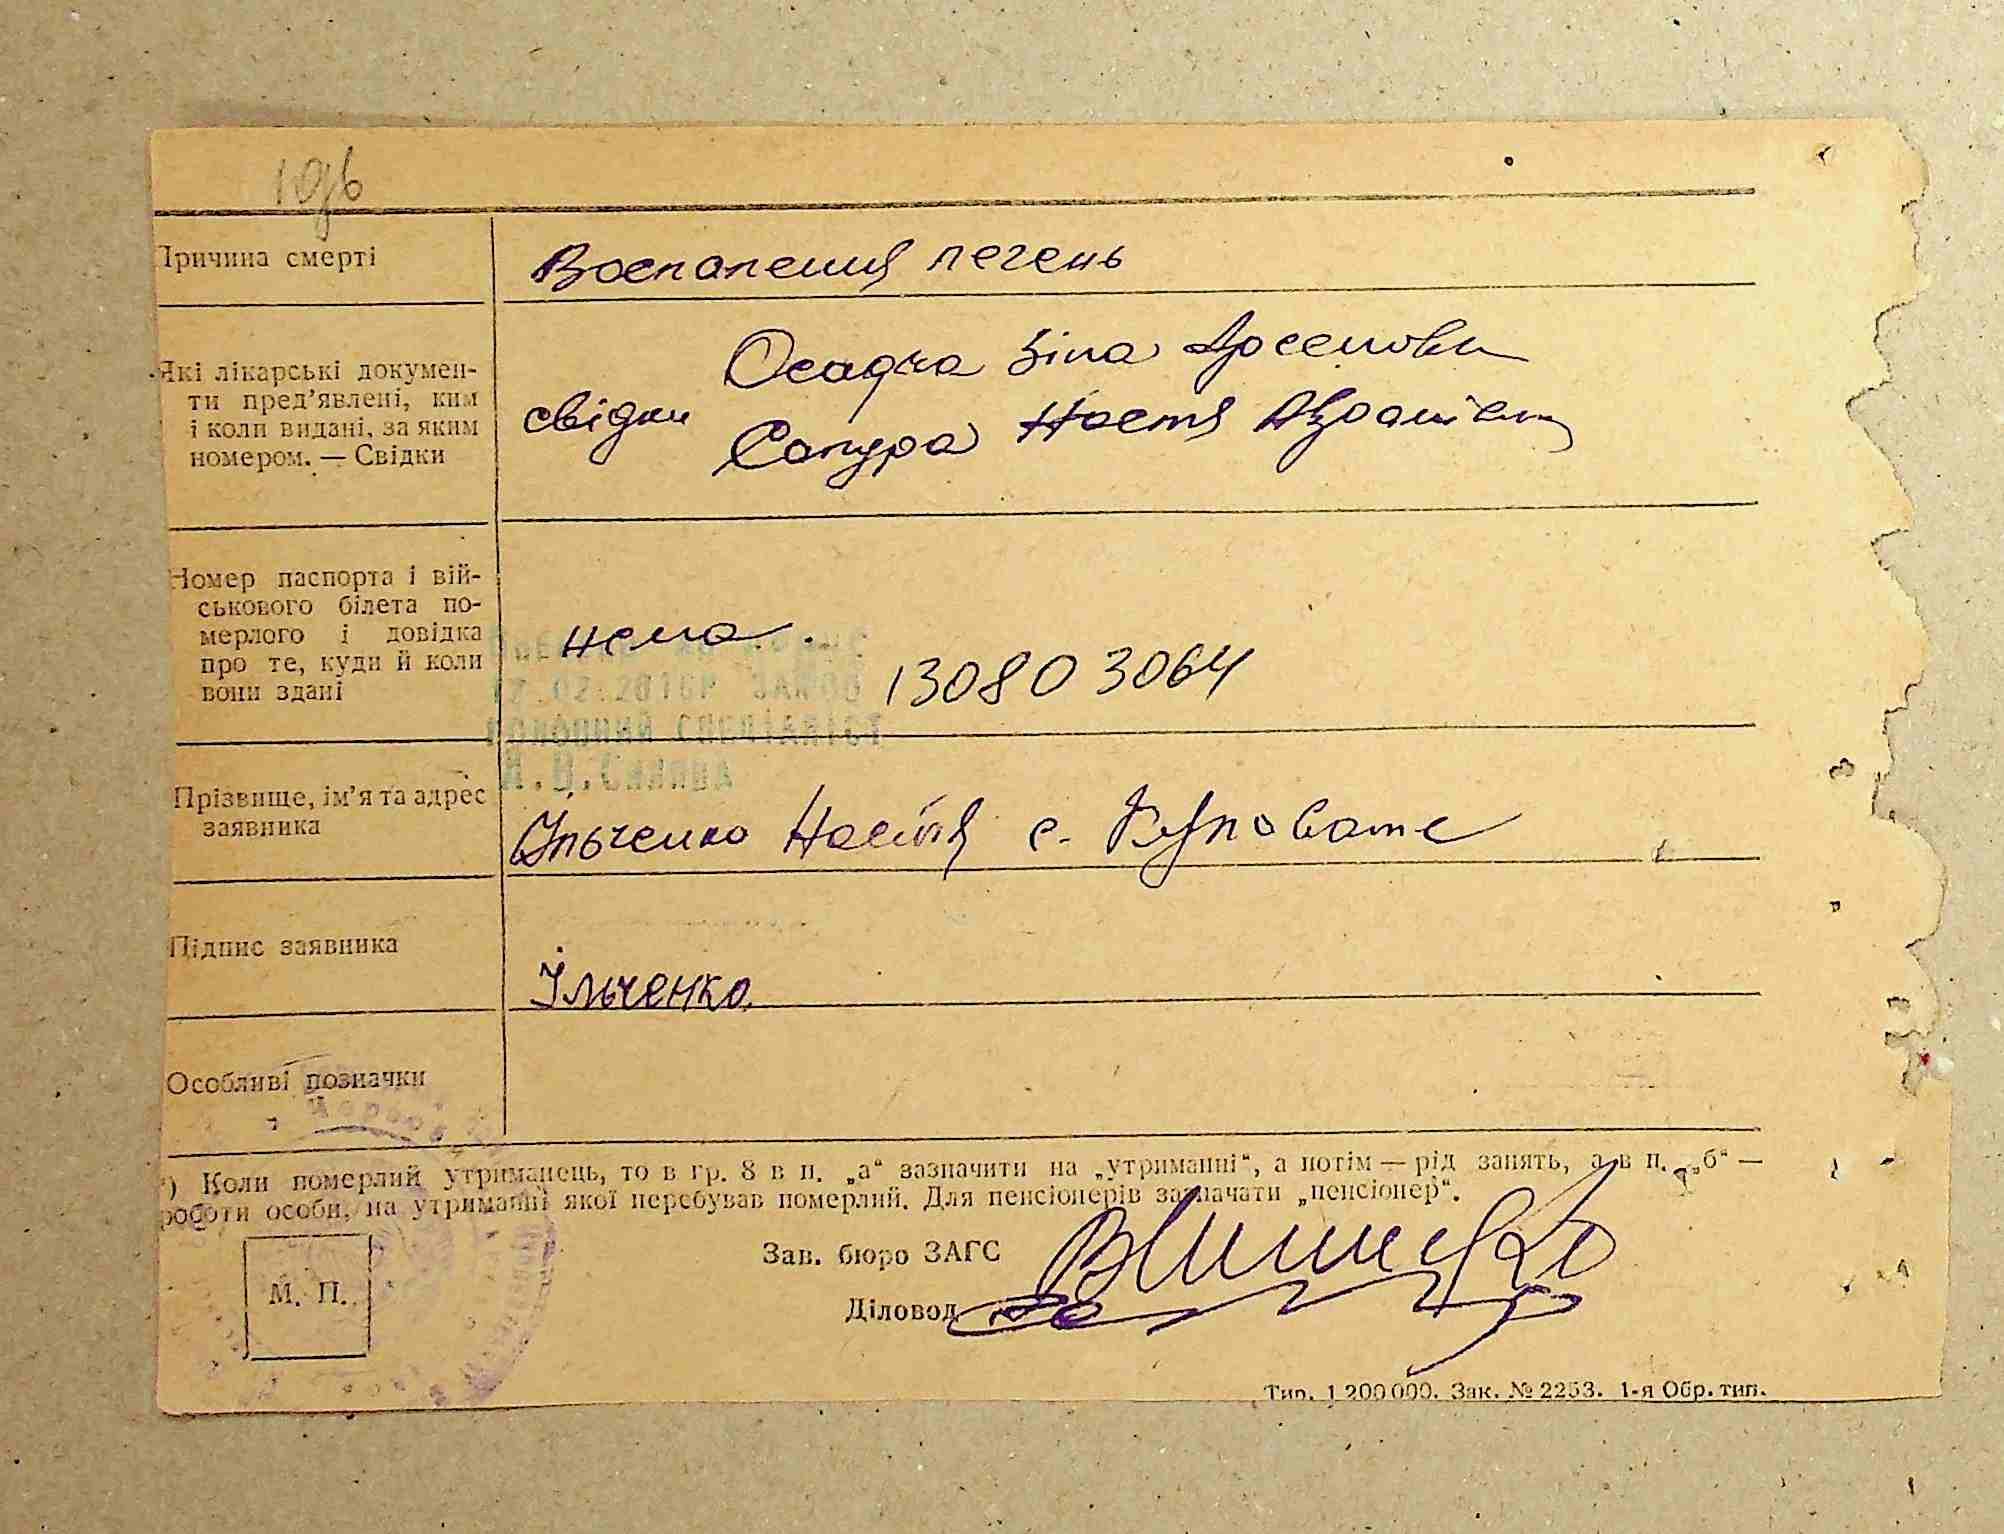 Причина смерті
Воспаления печень
Які лікарські докумен-
ти пред’явлені, ким
і коли видані, за яким
номером. — Свідки
Осадча Зіна Арсемови
свідки
Сапура Настя
Номер паспорта і вій-
ськового білета по-
мерлого і довідка
про те, куди й коли
вони здані
нема.
130803064
12.02.2010р
головний спеціаліст
Прізвище, ім’я та адрес
заявника
Ільченко Настя с. Куповате
Підпис заявника
Ільченко
Особливі позначки
*) Коли померлий утриманець, то в гр. 8 в п. „а“ зазначити на „утриманні“, а потім — рід занять, а в п. „б“ —
роботи особи, на утриманні якої перебував померлий. Для пенсіонерів зазначати „пенсіонер“.
Зав. бюро ЗАГС
М. П.
Діловод
Тип. 1 200 000. Зак. № 2253. 1-я Обр. тип.